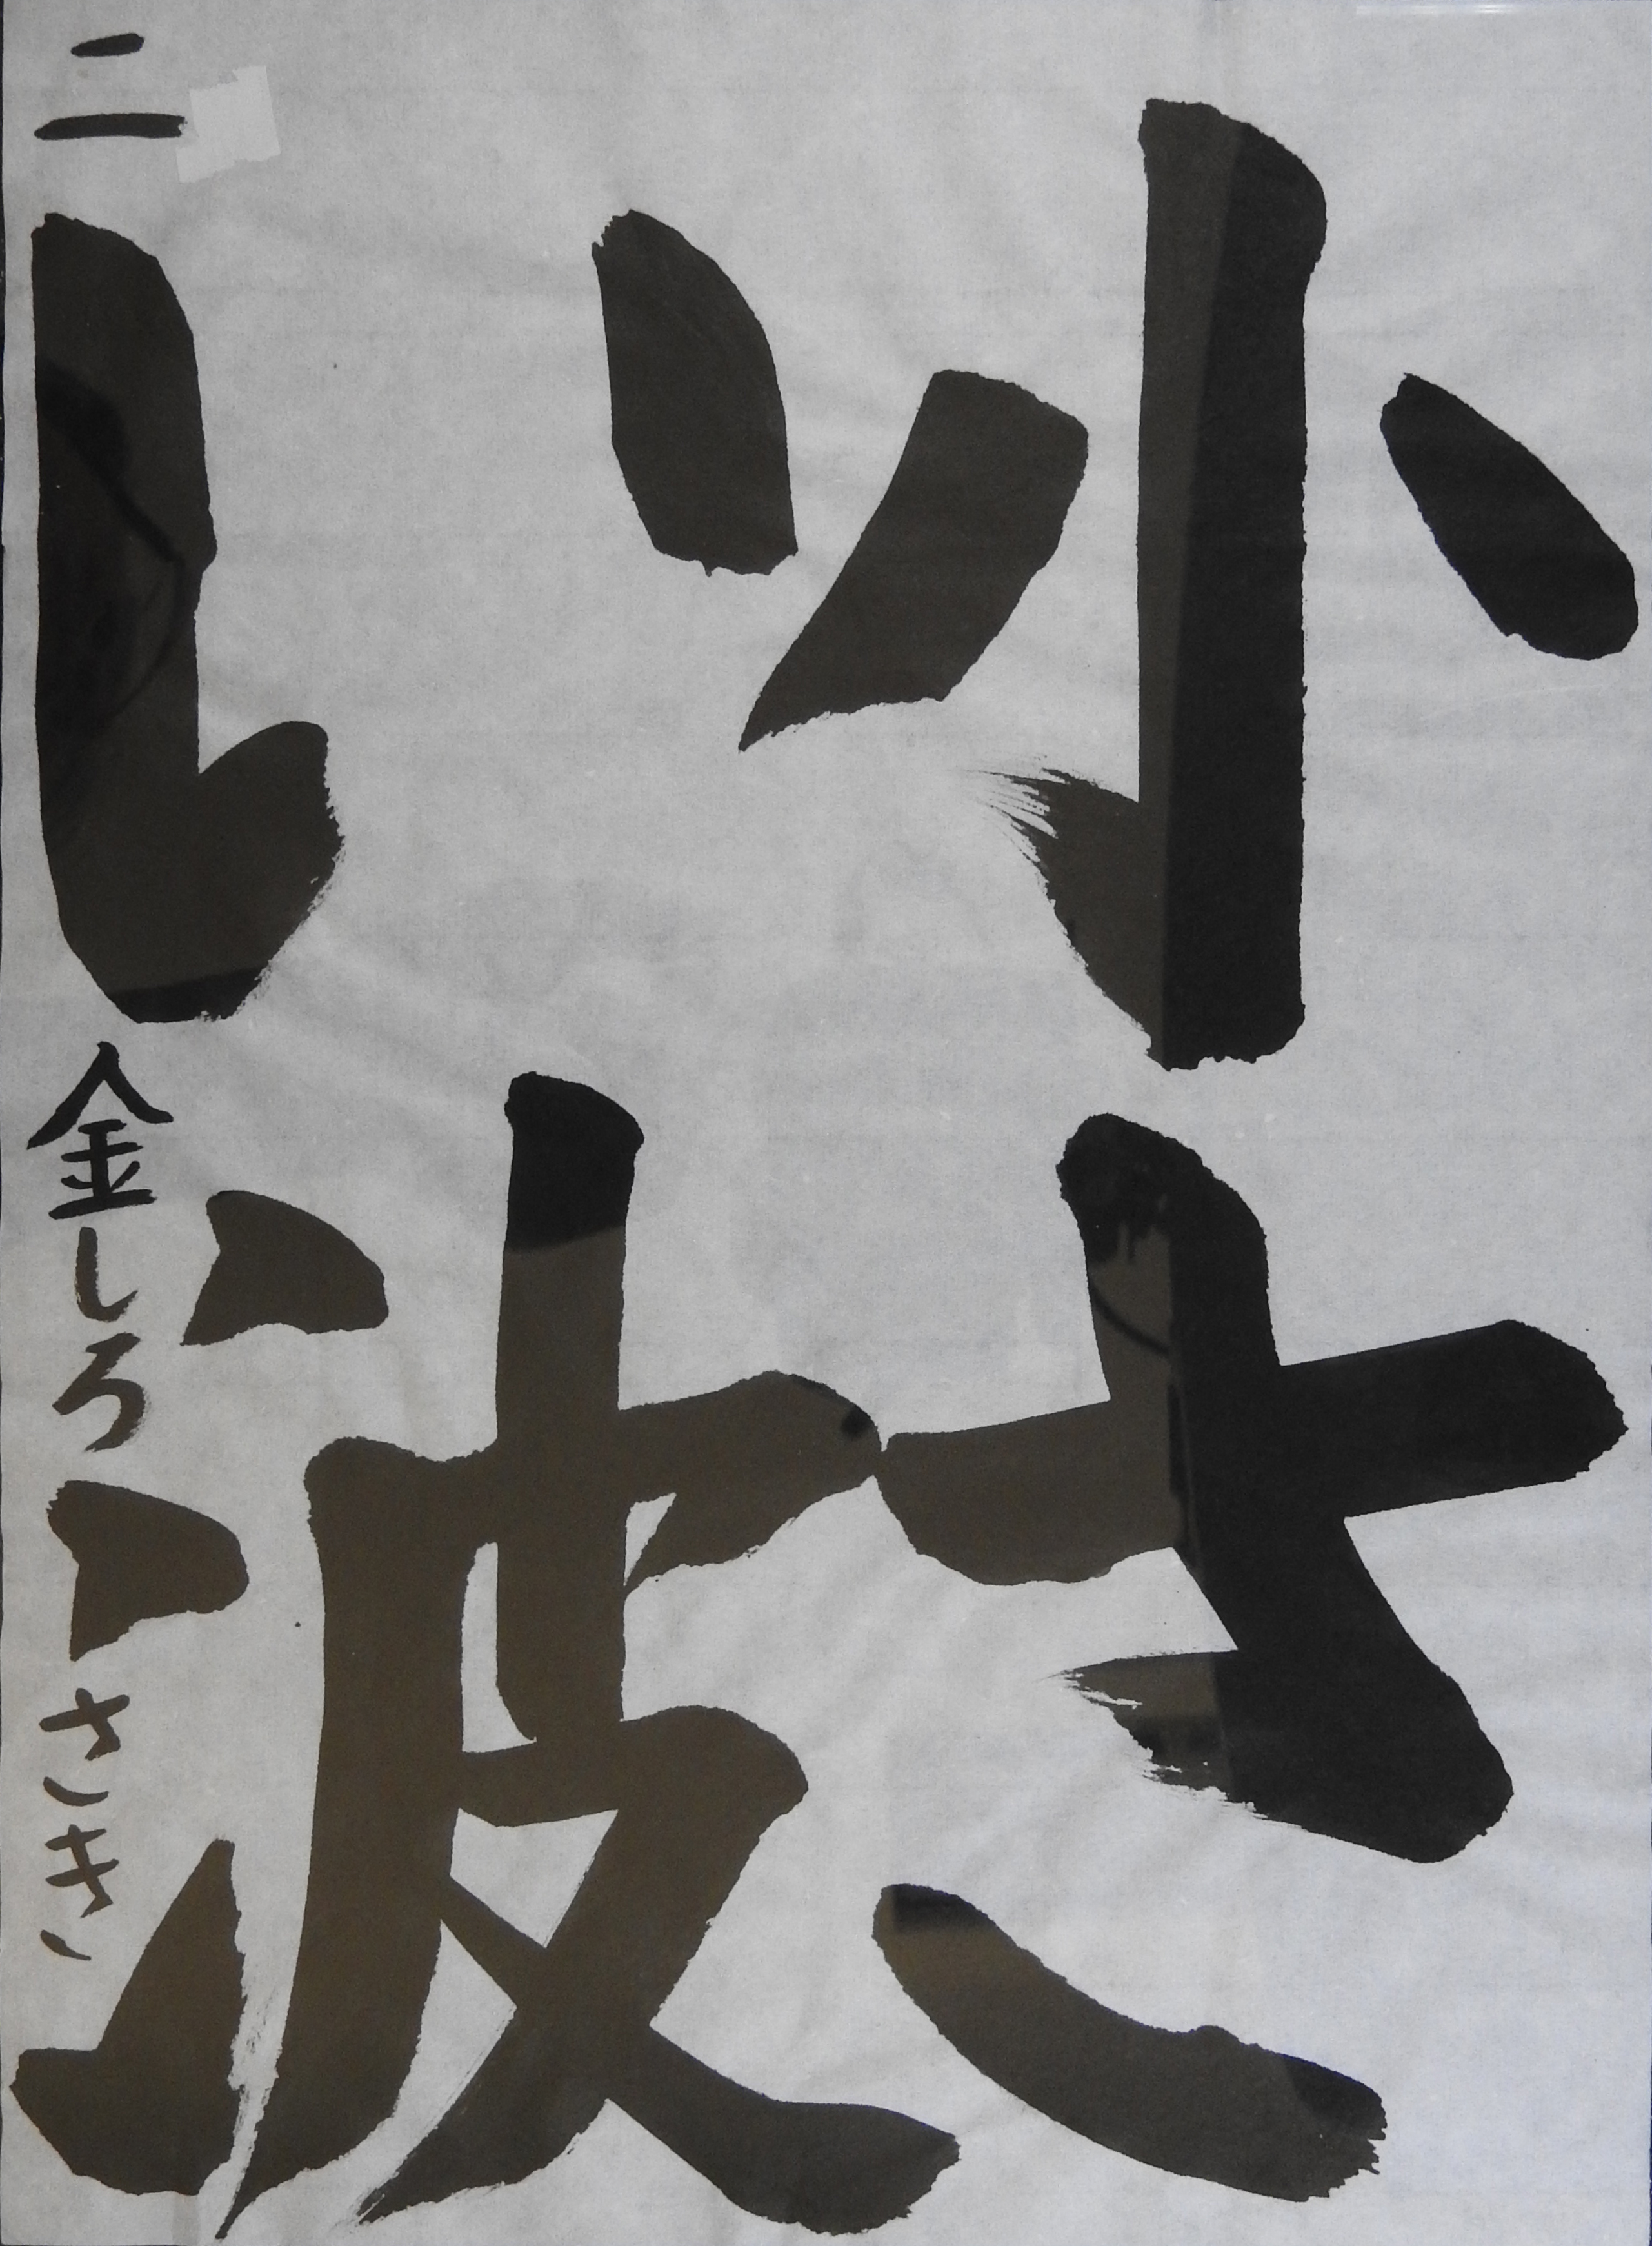 小さ
い波
二 金しろ さき